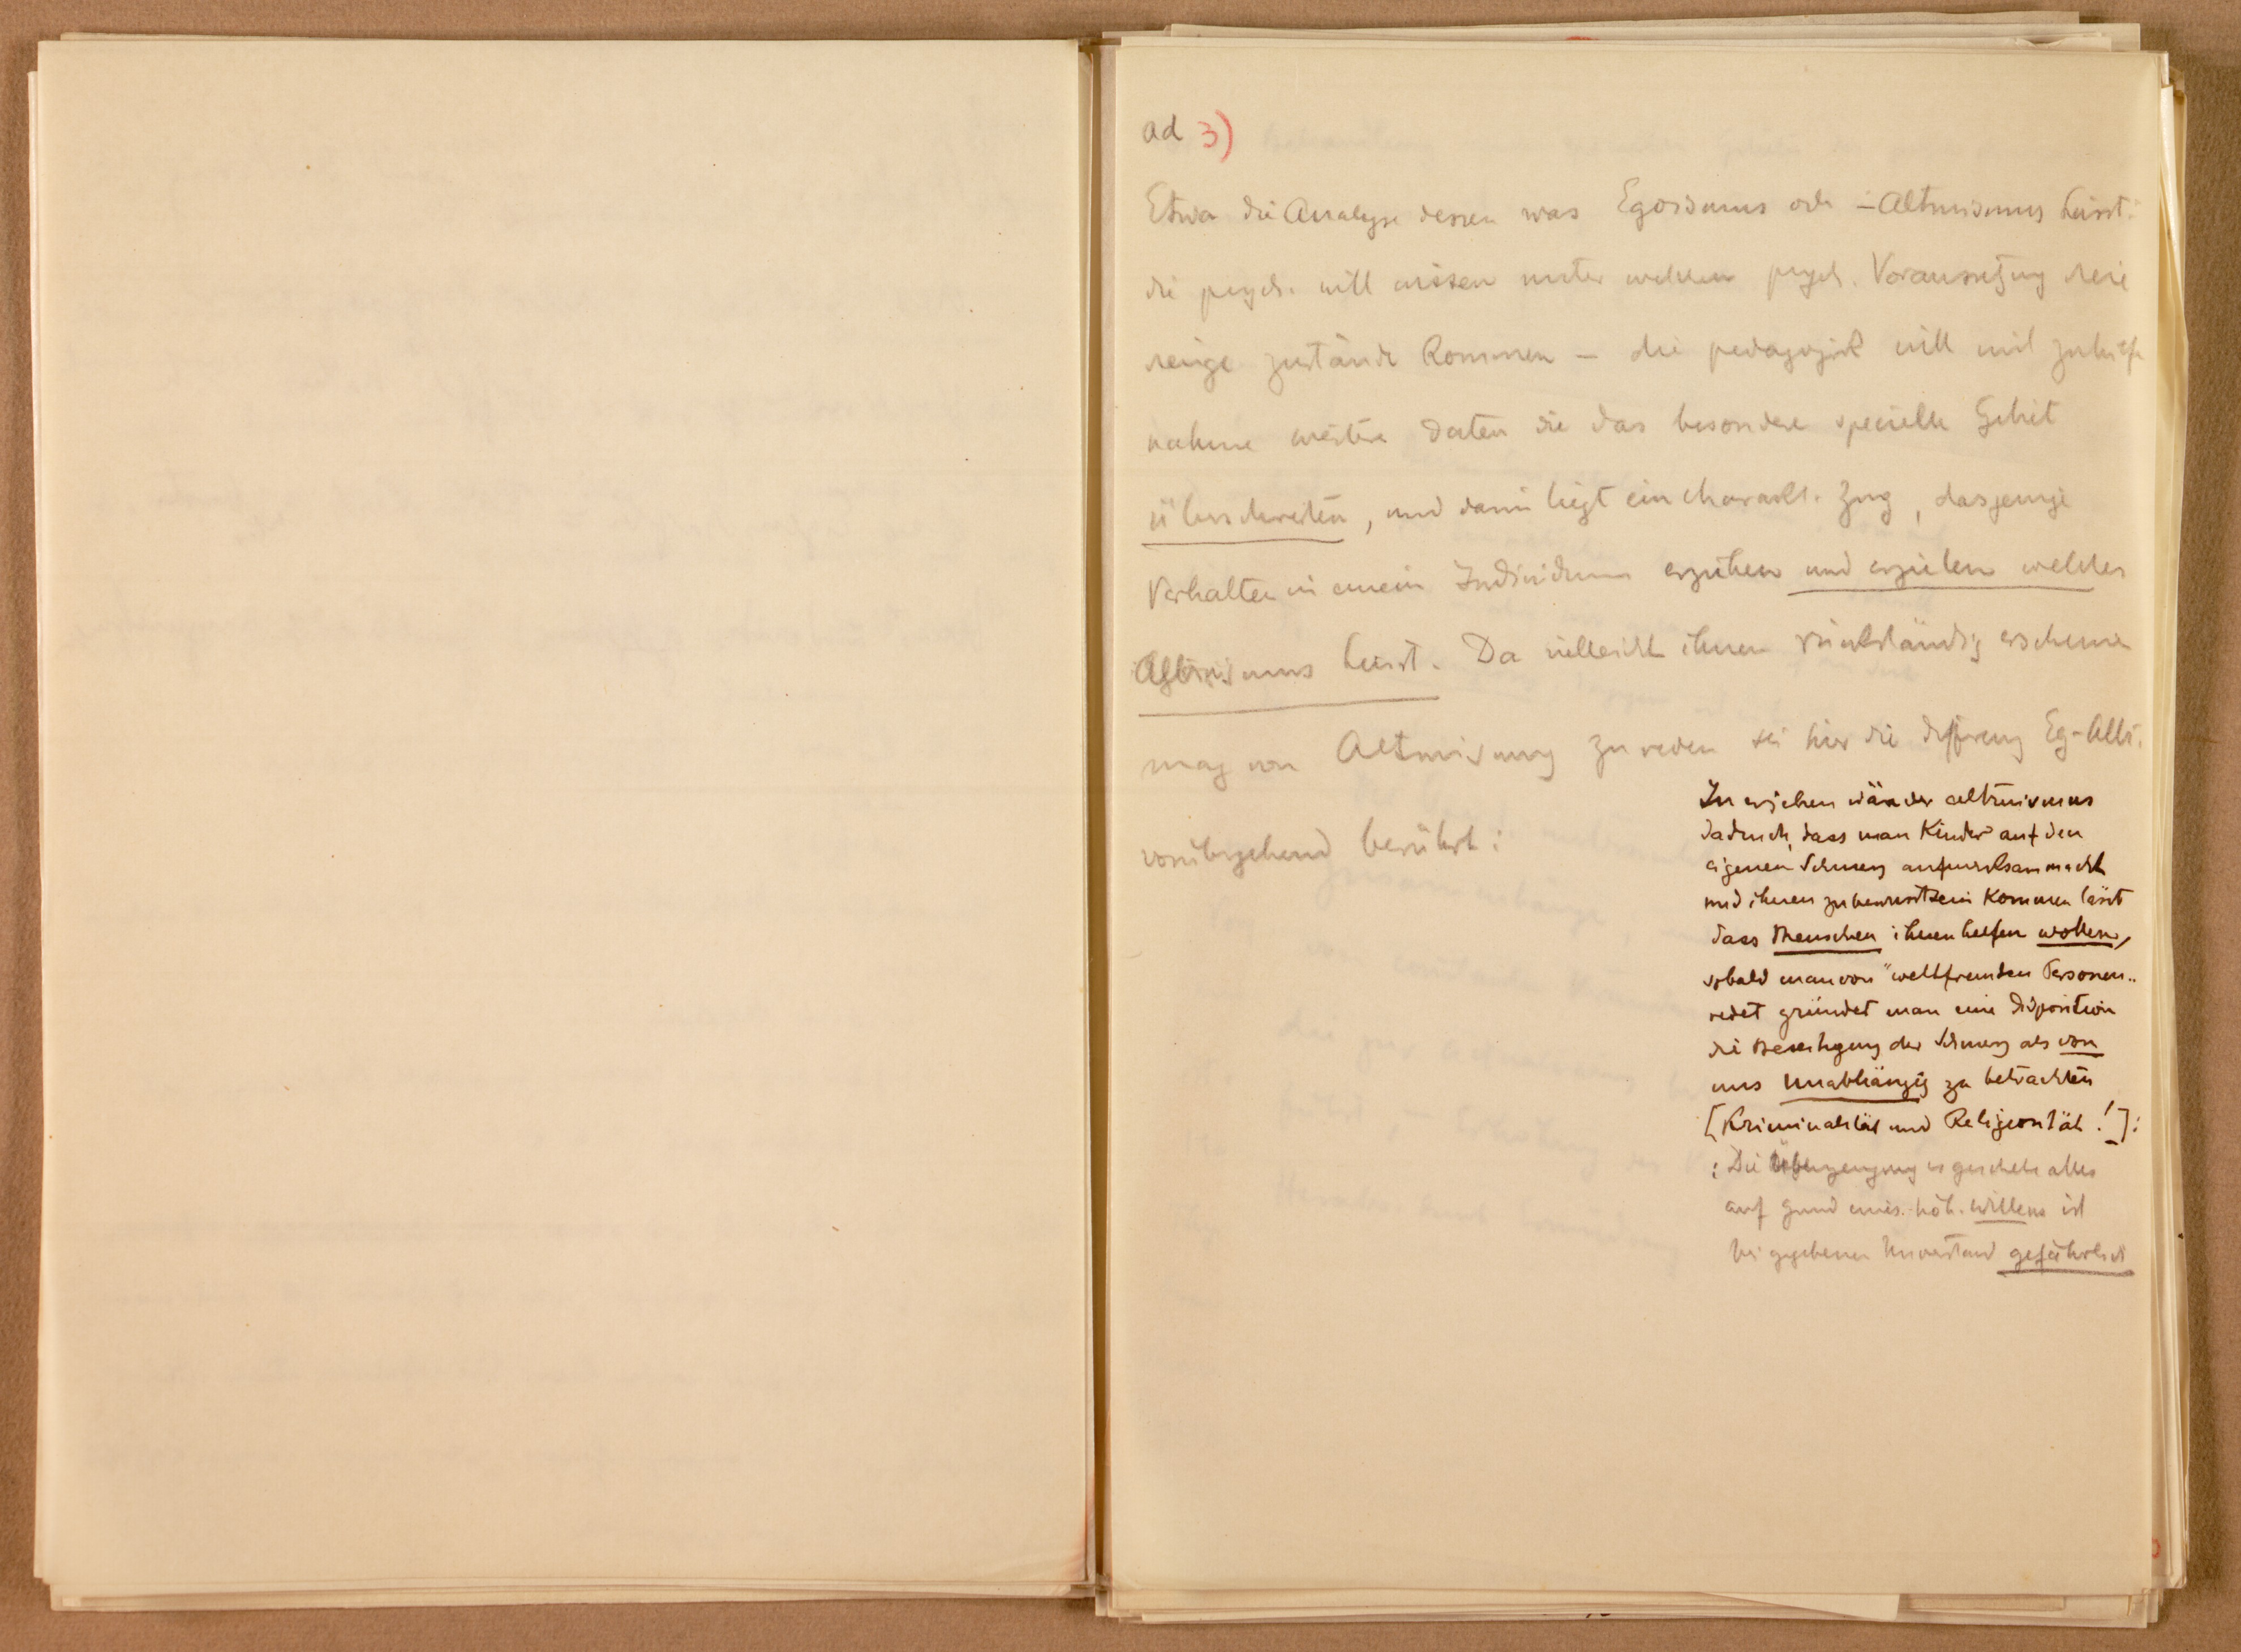 ad 3)
Etwa die Analyse dessen was Egoismus oder – Altruismus heisst:
die psych. will wissen unter welchen psych. Voraussetzung
zustände kommen – die pedagogik will mit zuhilfe
nahme weitere daten die das besondere specielle Gebiet
überschreiten, und darin liegt ein charakt. Zug, dasjenige
Verhalten in einem Individuum erziehen und erzielen welches
Altruismus heisst. Da vielleicht ihnen rückständig erscheinen
mag von Altruismus zu reden sei hier die differenz Eg-Altr.
vorübergehend berührt:
Zu erziehen wäre der altruismus
dadurch, dass man Kinder auf den
eigenen Schmerz aufmerksam macht
und ihnen zu bewusstsein kommen lässt
dass Menschen ihnen helfen wollen,
sobald man von "weltfremden Personen"
redet gründet man eine Disposition
die Beseitigung der Schmerz als von
uns unabhängig zu betrachten
[Kriminalität und Religiosität!]:
: Die Überzeugung es geschehe alles
auf grund eines höh. willens ist
bei gegebenen Unverstand gefährlich